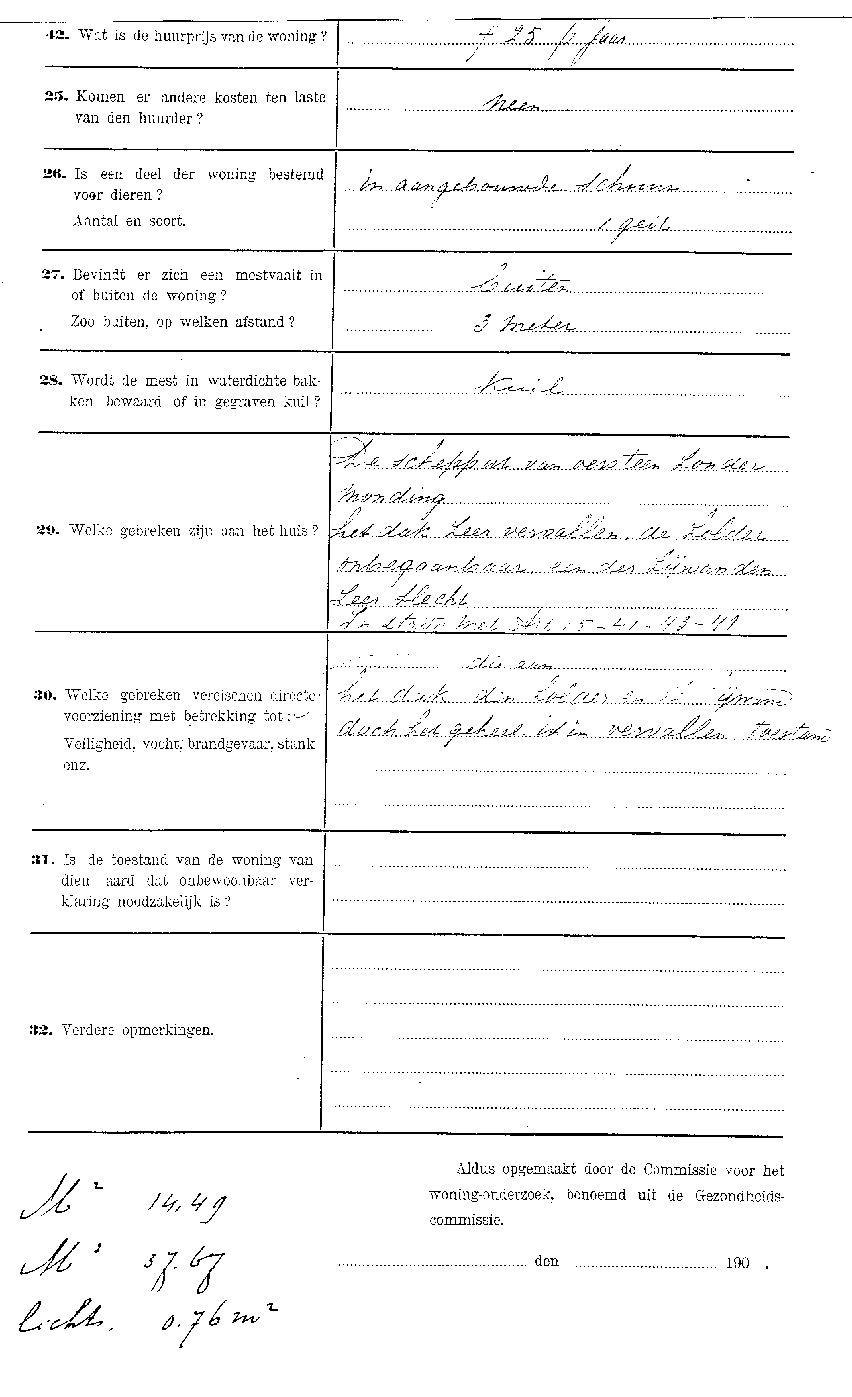 42. Wat is de huurprijs van de woning? f 25 p jaar
25. Komen er andere kosten ten laste
van den huurder? neen
26. Is een deel der woning bestemd
voor dieren? in aangebouwde schuur
Aantal en soort. 1 geit
27. Bevindt er zich een mestvaalt in
of buiten de woning? buiten
Zoo buiten, op welken afstand? 3 meter
28. Wordt de mest in waterdichte bak-
ken bewaard of in gegraven kuil? Kuil
29. Welke gebreken zijn aan het huis?
De schepput van oersteen zonder
monding
het dak zeer vervallen, de zolder
onbegaanbaar een der zijwanden
zeer slecht
In strijd met Art. 15-41-49
30. Welke gebreken vereischen directe
voorziening met betrekking tot:
Veiligheid, vocht, brandgevaar, stank
enz.
die aan
het dak den zolder en
doch het geheel is in vervallen toestand
31. Is de toestand van de woning van
dien aard dat onbewoonbaar ver-
klaring noodzakelijk is?
32. Verdere opmerkingen.
Aldus opgemaakt door de Commissie voor het
woning-onderzoek, benoemd uit de Gezondheids-
commissie.
den 190 .
M² 14.49
M³ 37.67
licht. 0.76 m²